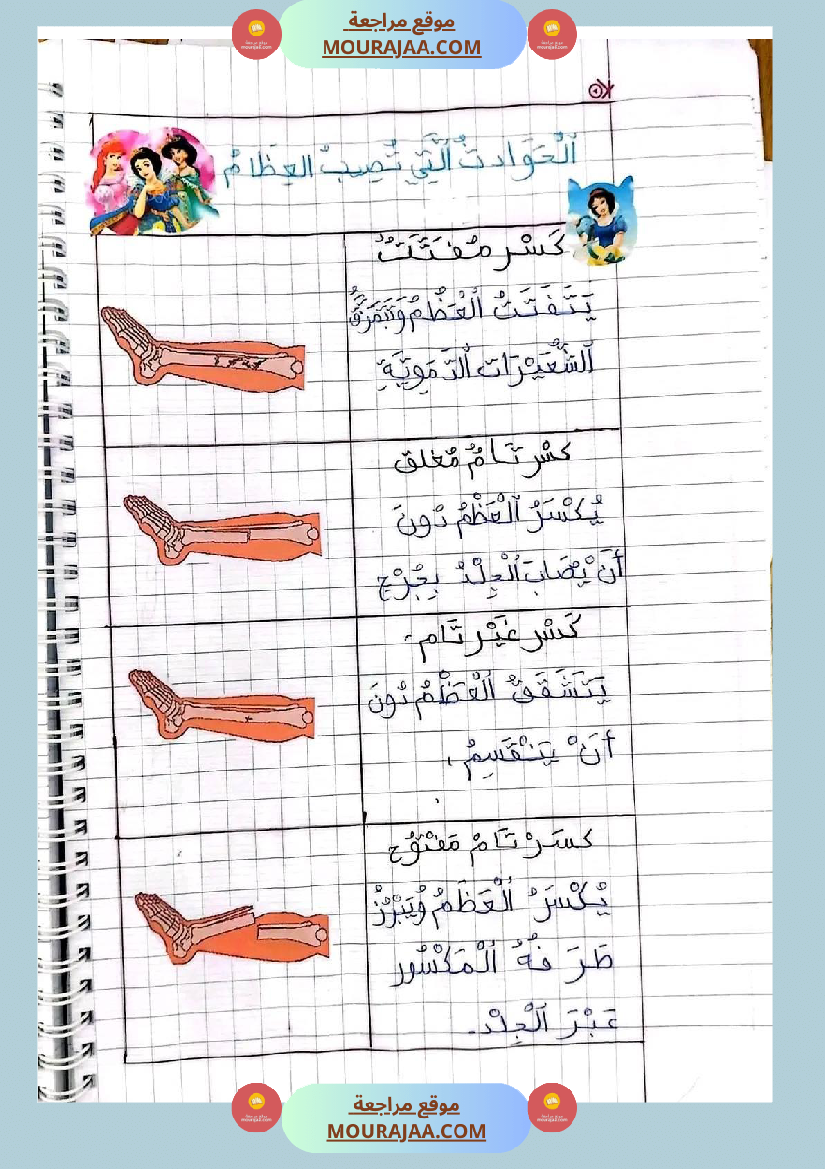 موقع مراجعة
MOURAJAA.COM
الْحَوَادثُ الَّتِي تُصِيبُ العِظَامُ
كَسْر مُفَتَّتُ
يَتَفَتَتُ الْعَظْمُ وَتَتَمَزَّقُ
الشُّعَيْرَات الدَّمَوِيَّةِ
كسْر تَامُّ مُغلق
يُكْسَرُ الْعَظْمُ دُونَ
أَنْ يُصَابَ الْجِلْدُ بِجُرْحٍ
كَسْر غَيْر تَام.
يَتَشَقَقُ الْعَظْمُ دُونَ
أَنْ يَنْقَسِمُ.
كسَرْ تَامْ مَفْتُوح
يُكْسَرُ الْعَظَمُ وُيَبْرُزُ
طَرَفُهُ الْمَكْسُور
عَبْرَ الْجِلْد.
موقع مراجعة
MOURAJAA.COM